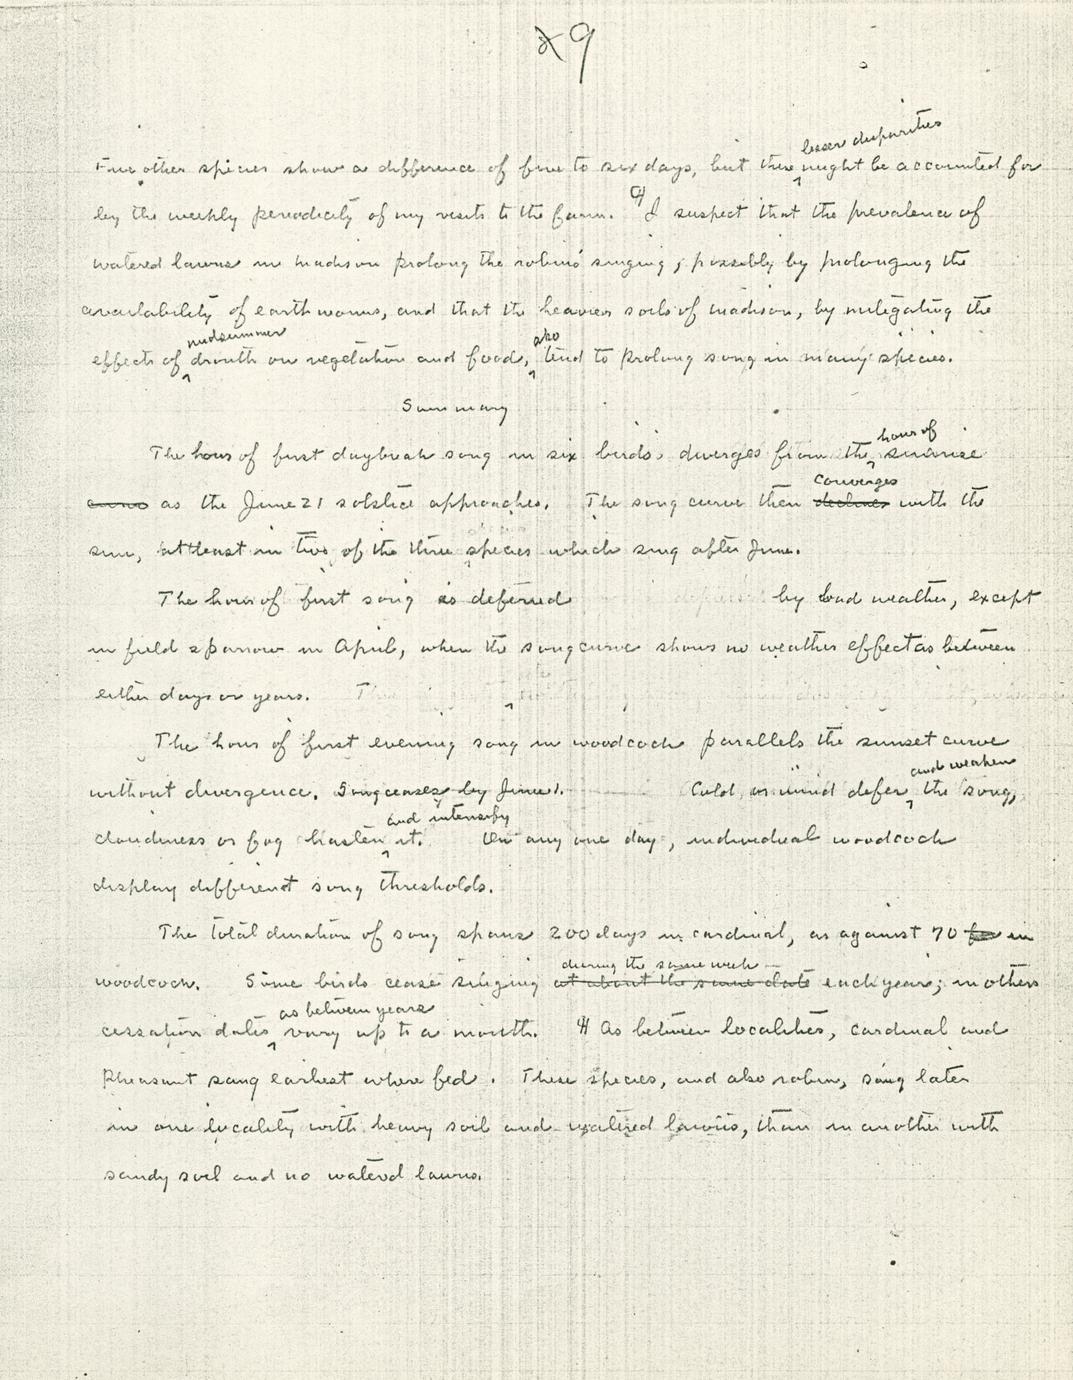 9
Five other species show a difference of five to six days, but these lesser disparities might be accounted for
by the weekly periodicity of my visits to the farm. ¶ I suspect that the prevalence of
watered lawns in Madison prolong the robins' singing, possibly by prolonging the
availability of earthworms, and that the heavier soils of Madison, by mitigating the
effects of midsummer drouth on vegetation and food, also tend to prolong song in many species.
Summary
The hour of first daybreak song in six birds diverges from the hour of sunrise
as the June 21 solstice approaches. The song curve then declines converges with the
sun, at least in two of the three species which sing after June.
The hour of first song is deferred by bad weather, except
in field sparrow in April, when the song curve shows no weather effect as between
either days or years. T
The hour of first evening song in woodcock parallels the sunset curve
without divergence. Song ceases by June 1. Cold or wind defer and weaken the song,
cloudiness or fog hasten and intensify it. On any one day, individual woodcock
display different song thresholds.
The total duration of song spans 200 days in cardinal, as against 70 for in
woodcock. Some birds cease singing at about the same date during the same week each year; in others
cessation dates as between years vary up to a month. ¶ As between localities, cardinal and
pheasant sang earliest where fed. These species, and also robin, sang later
in one locality with heavy soil and watered lawns, than in another with
sandy soil and no watered lawns.